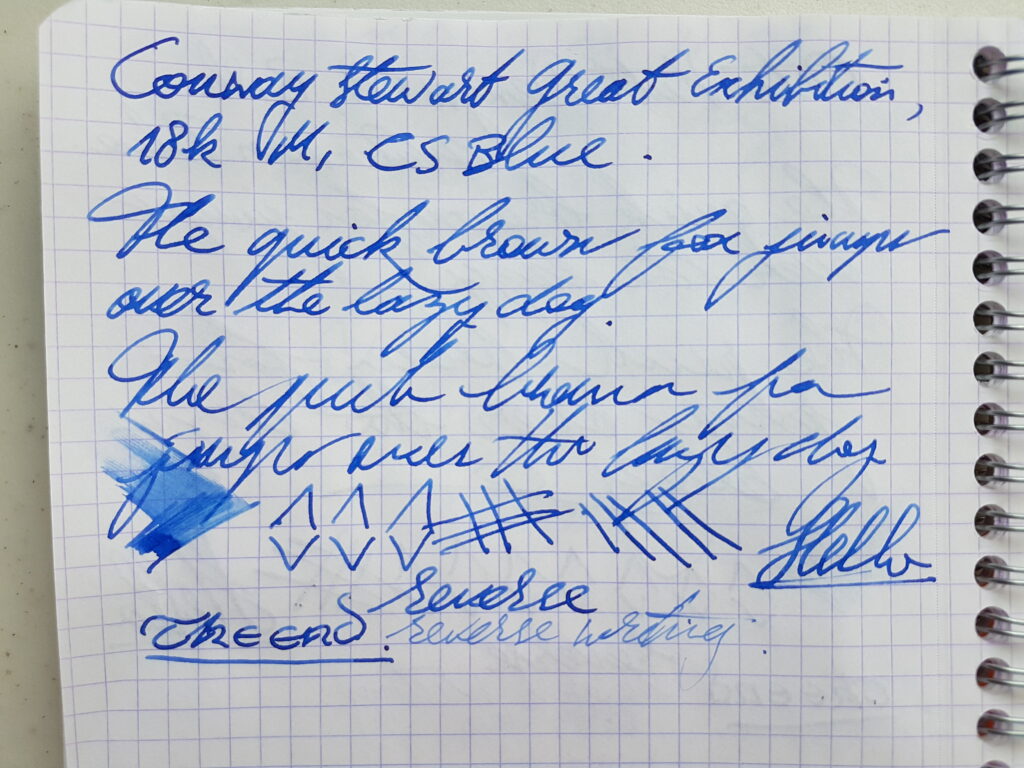 Conway Stewart Great Exhibition,
18k M, CS Blue.
The quick brown fox jumps
over the lazy dog.
The quick brown fox
jumps over the lazy dog
Hello
reverse
THE END. reverse writing.